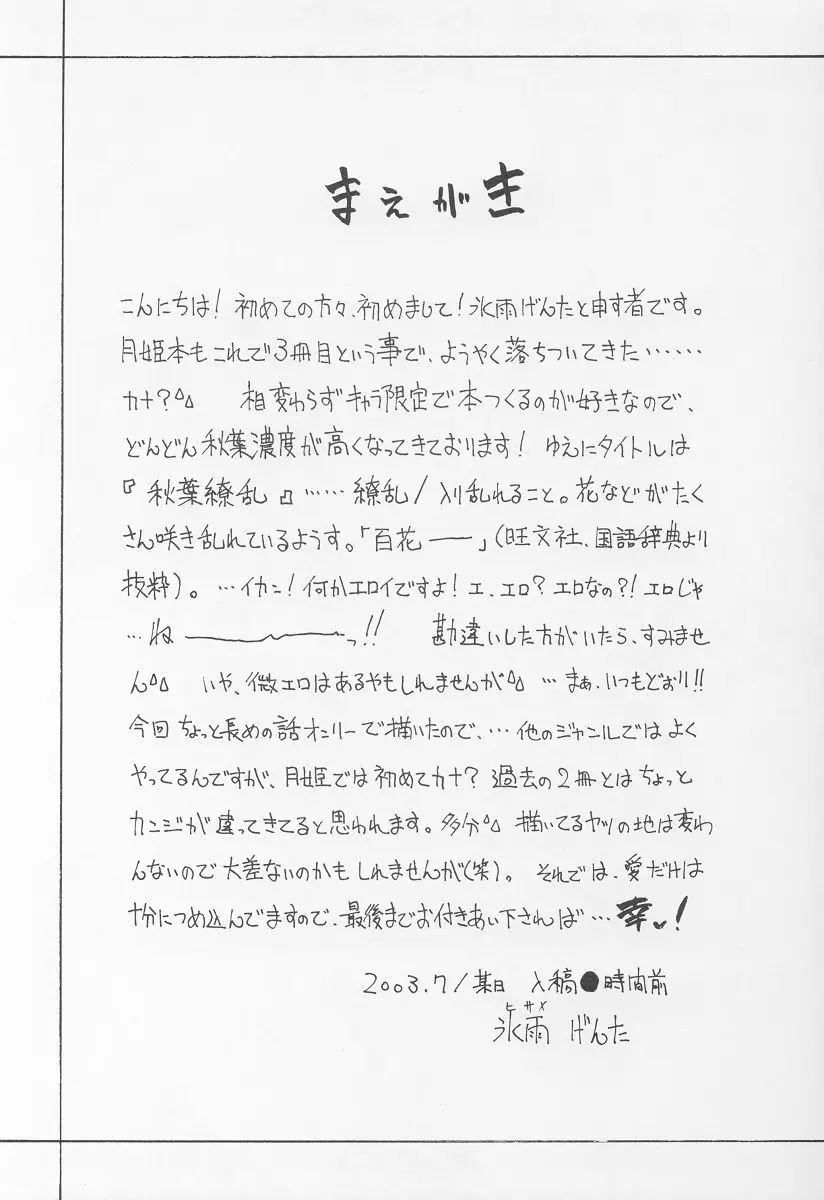 まえがき
こんにちは! 初めての方々、初めまして! 氷雨げんたと申す者です。
月姫本もこれで3冊目という事で、ようやく落ちついてきた……
カナ?^^ 相変わらずキャラ限定で本つくるのが好きなので、
どんどん秋葉濃度が高くなってきております! ゆえにタイトルは
『秋葉繚乱』……繚乱/入り乱れること。花などがたく
さん咲き乱れているようす。「百花――」(旺文社、国語辞典より
抜粋)。…イカン! 何かエロイですよ! エ、エロ? エロなの?! エロじゃ
…ね――――っ!! 勘違いした方がいたら、すみませ
ん^^ いや、微エロはあるやもしれませんが^^ …まぁ、いつもどおり!!
今回ちょっと長めの話オンリーで描いたので、…他のジャンルではよく
やってるんですが、月姫では初めてカナ? 過去の2冊とはちょっと
カンジが違ってきてると思われます。多分^^ 描いてるヤツの地は変わ
んないので大差ないのかもしれませんが(笑)。それでは、愛だけは
十分につめ込んでますので、最後までお付きあい下されば…幸♥!
2003.7/某日 入稿●時間前
ヒサメ
氷雨 げんた